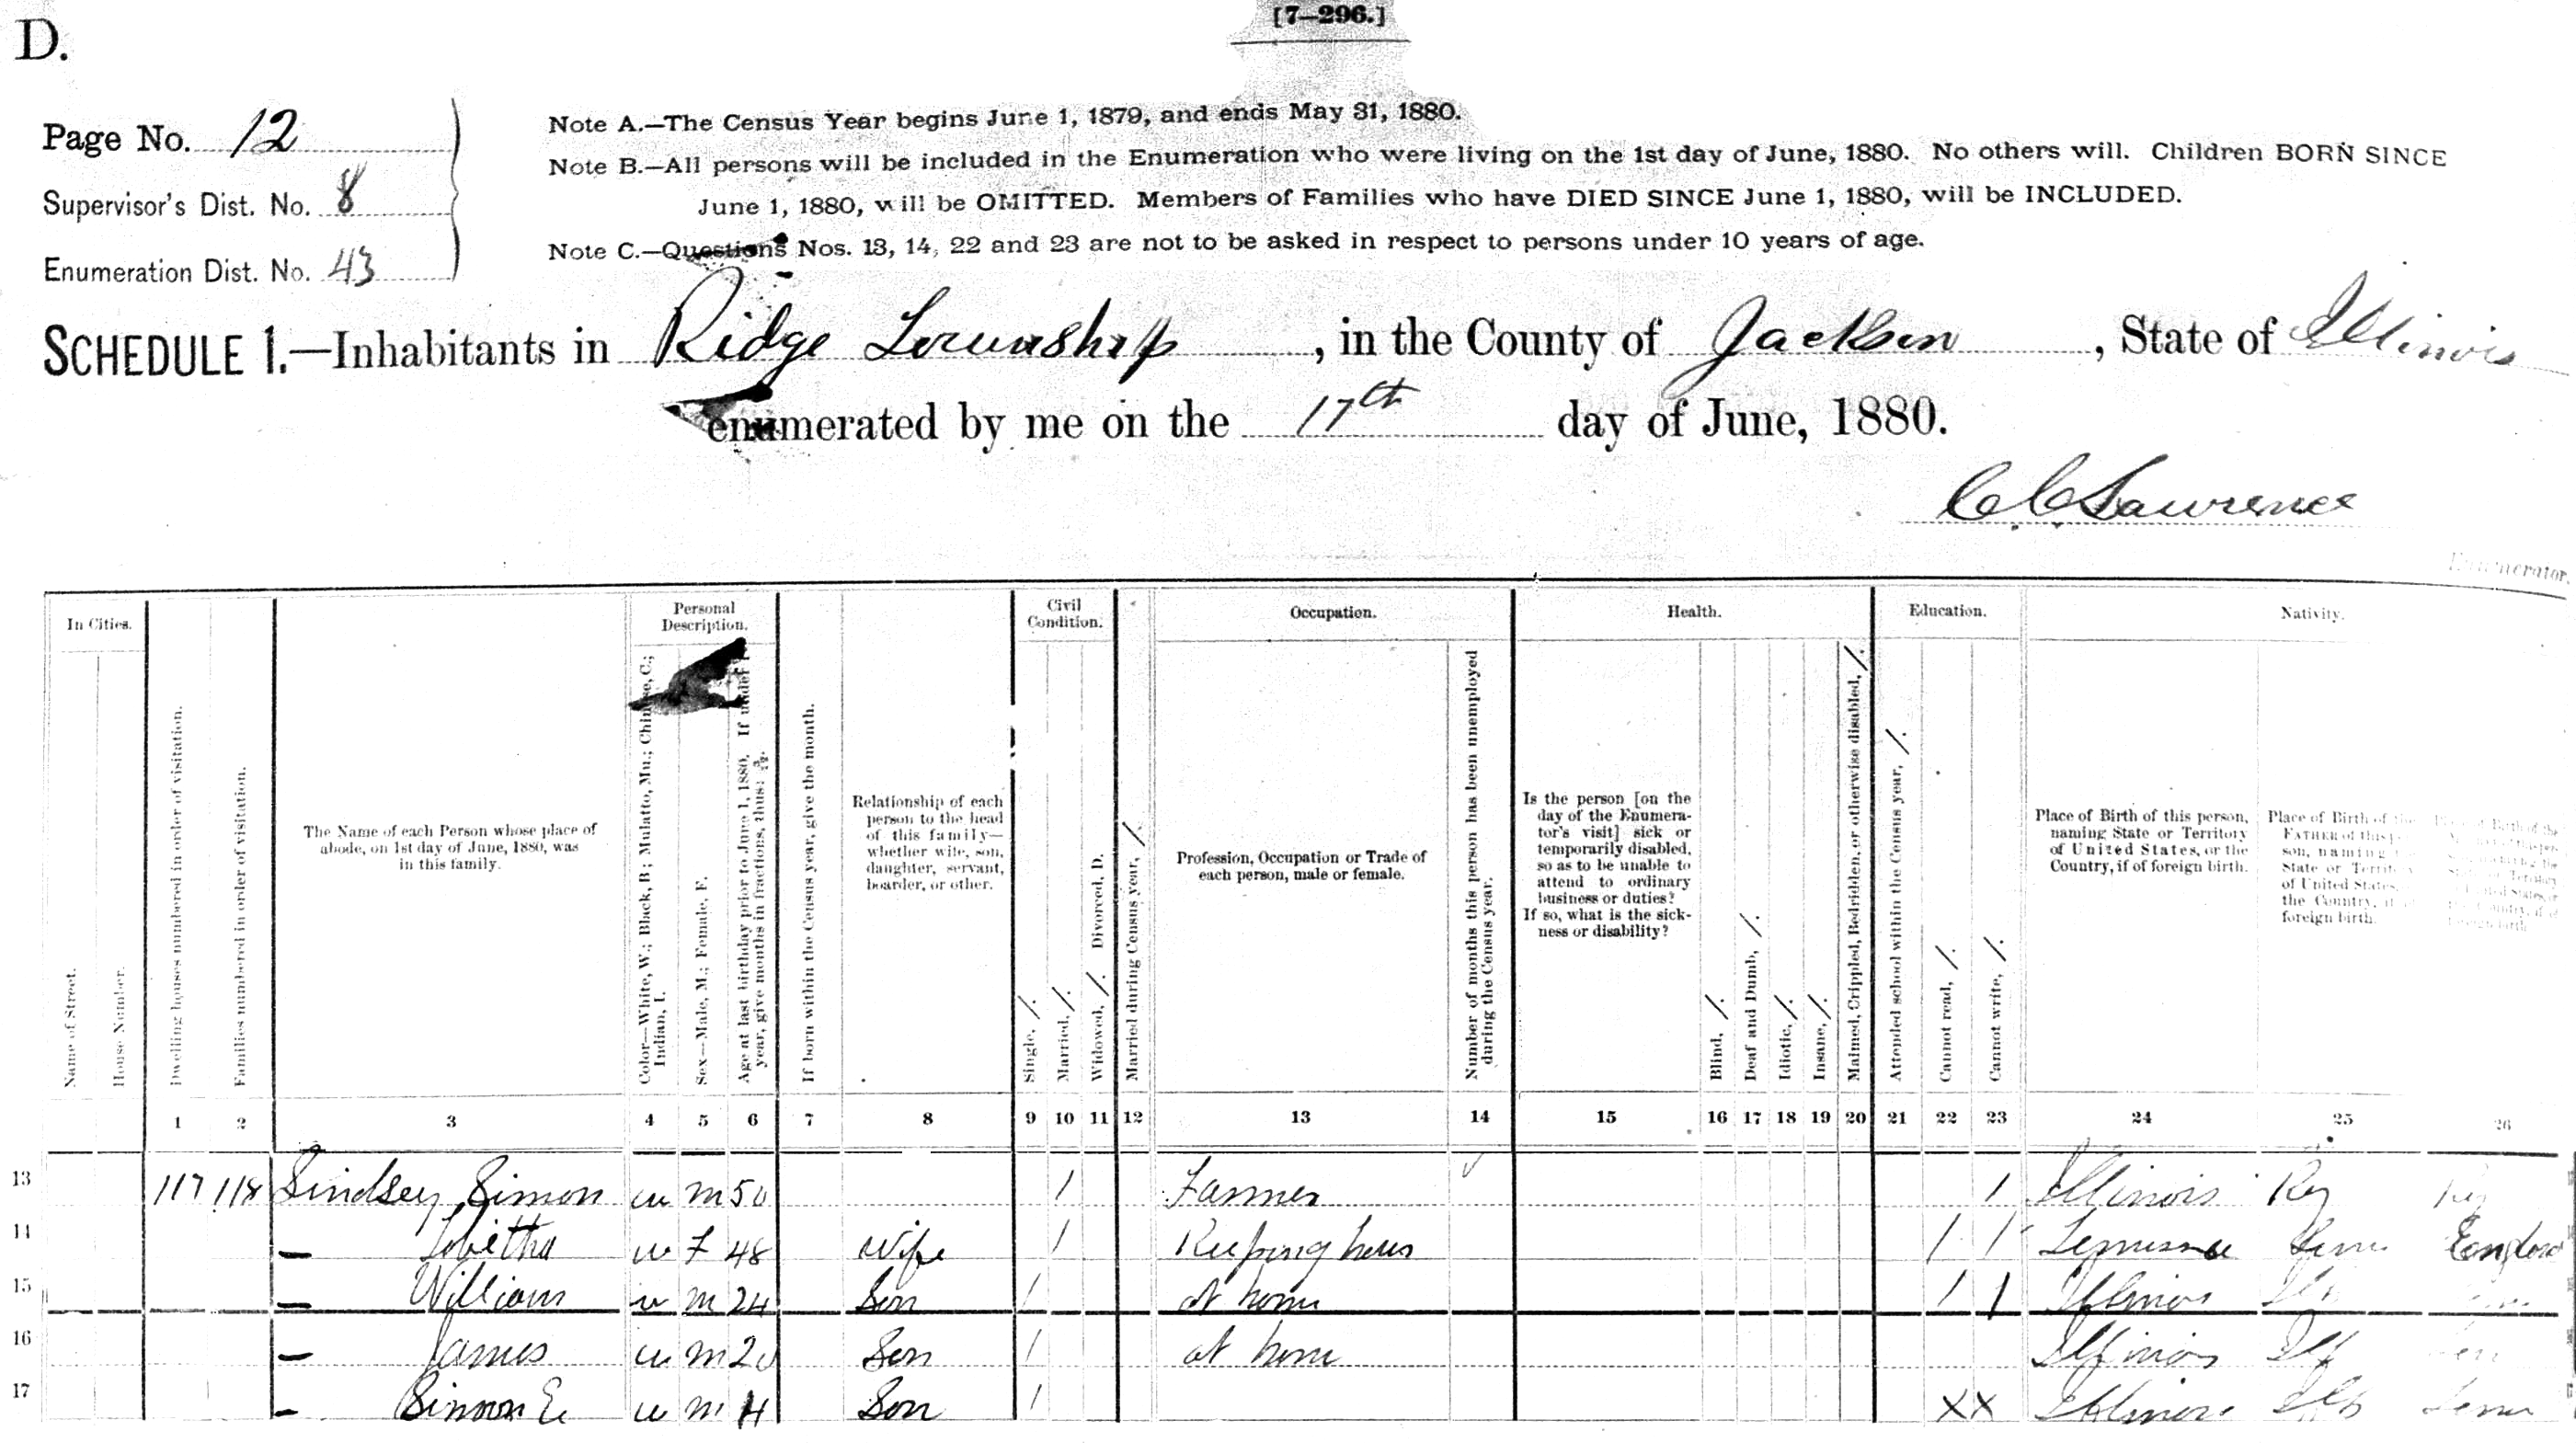 [7–296.]
D.
Page No. 12
Supervisor's Dist. No. 8
Enumeration Dist. No. 43
Note A.—The Census Year begins June 1, 1879, and ends May 31, 1880.
Note B.—All persons will be included in the Enumeration who were living on the 1st day of June, 1880. No others will. Children BORN SINCE
June 1, 1880, will be OMITTED. Members of Families who have DIED SINCE June 1, 1880, will be INCLUDED.
Note C.—Questions Nos. 13, 14, 22 and 23 are not to be asked in respect to persons under 10 years of age.
SCHEDULE 1.—Inhabitants in Ridge Township, in the County of Jackson, State of Illinois
enumerated by me on the 17th day of June, 1880.
C. C. Lawrence
Enumerator.
In Cities.
Personal Description.
Civil Condition.
Occupation.
Health.
Education.
Nativity.
Name of Street.
House Number.
Dwelling houses numbered in order of visitation.
Families numbered in order of visitation.
The Name of each Person whose place of
abode, on 1st day of June, 1880, was
in this family.
Color—White, W.; Black, B.; Mulatto, Mu.; Chinese, C.;
Indian, I.
Sex—Male, M.; Female, F.
Age at last birthday prior to June 1, 1880. If under 1
year, give months in fractions, thus: 3/12.
If born within the Census year, give the month.
Relationship of each
person to the head
of this family—
whether wife, son,
daughter, servant,
boarder, or other.
Single, /.
Married, /.
Widowed, /. Divorced, D.
Married during Census year, /.
Profession, Occupation or Trade of
each person, male or female.
Number of months this person has been unemployed
during the Census year.
Is the person [on the
day of the Enumera-
tor's visit] sick or
temporarily disabled,
so as to be unable to
attend to ordinary
business or duties?
If so, what is the sick-
ness or disability?
Blind, /.
Deaf and Dumb, /.
Idiotic, /.
Insane, /.
Maimed, Crippled, Bedridden, or otherwise disabled, /.
Attended school within the Census year, /.
Cannot read, /.
Cannot write, /.
Place of Birth of this person,
naming State or Territory
of United States, or the
Country, if of foreign birth.
Place of Birth of the
FATHER of this per-
son, naming
State or Territory
of United States,
the Country, if of
foreign birth.
1 2 3 4 5 6 7 8 9 10 11 12 13 14 15 16 17 18 19 20 21 22 23 24 25 26
13 117 118 Lindsey, Simon W M 50 / Farmer / Illinois Ky Ky
14 — W F 48 Wife / Keeping hous / / Tennessee Tenn
15 — William W M 24 Son / at home / / Illinois
16 — James W M 20 Son / at home Illinois Ill
17 — Simon E. W M Son / X X Illinois Ills Tenn